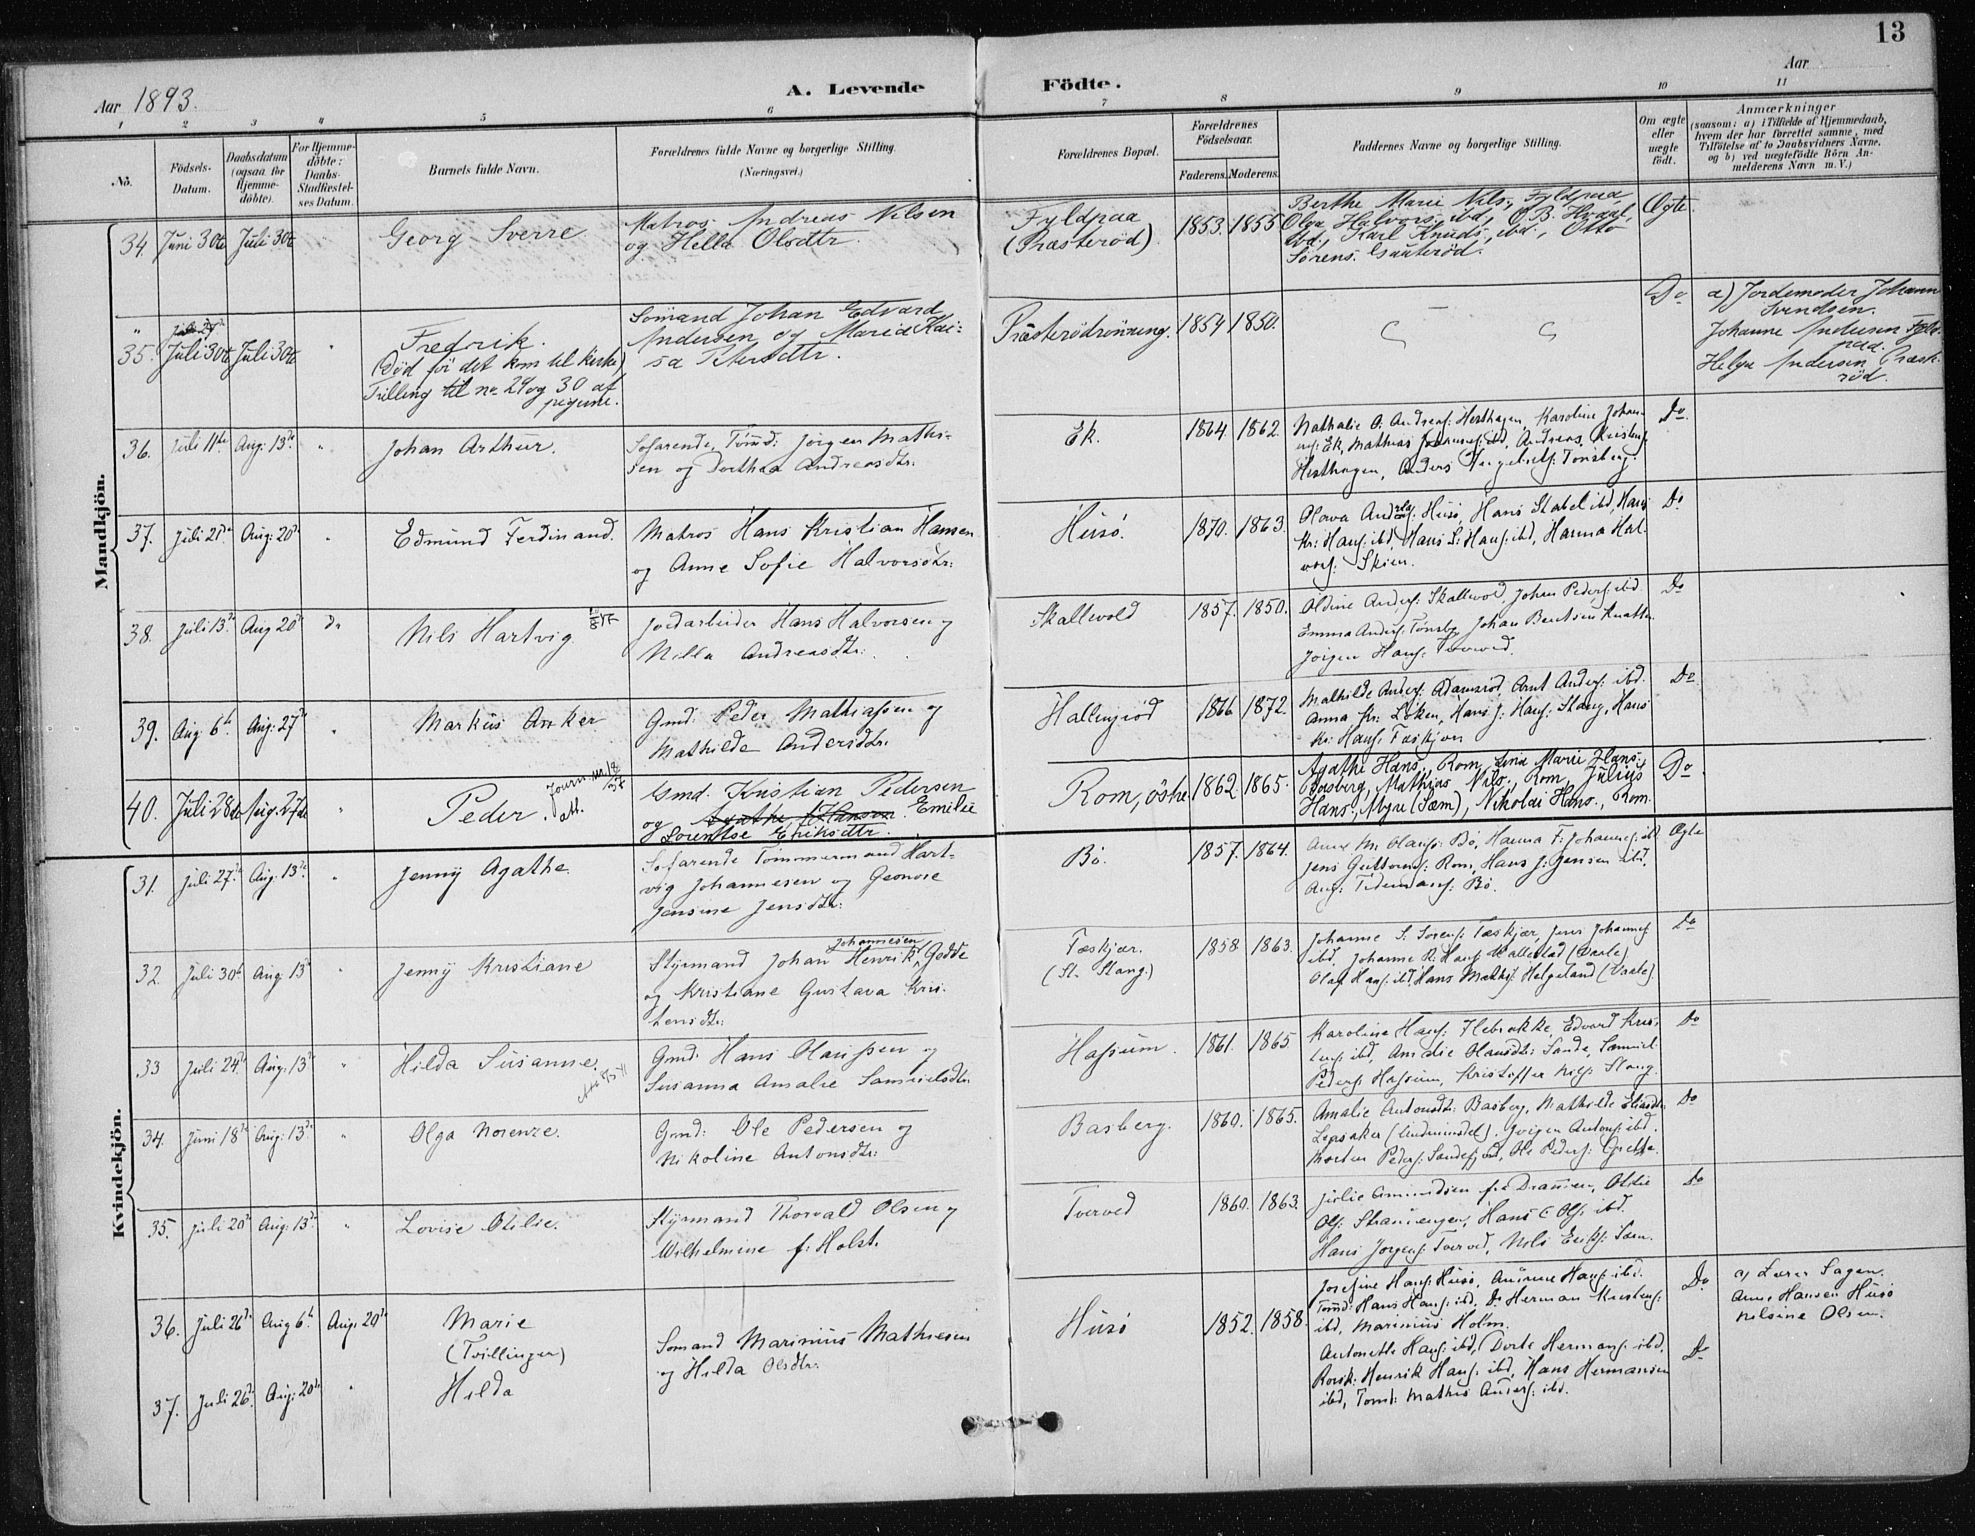 13
Aar 1893.
A. Levende Födte.
Aar
1 2 3 4 5 6 7 8 9 10 11
No.
Födsels-Datum.
Daabsdatum (ogsaa for Hjemmedöbte).
For Hjemmedöbte: Daabs-Stadfæstelses Datum.
Barnets fulde Navn.
Forældrenes fulde Navne og borgerlige Stilling. (Næringsvei.)
Forældrenes Bopæl.
Forældrenes Födselsaar.
Faderens. Moderens.
Faddernes Navne og borgerlige Stilling.
Om ægte eller uægte födt.
Anmærkninger
(saasom: a) i Tilfælde af Hjemmedaab,
hvem der har forrettet samme, med
Tilföielse af to Daabsvidners Navne,
og b) ved uægtefödte Börn An-
melderens Navn m. V.)
Mandkjön.
34. Juni 30te Juli 30te Georg Sverre
Matros Andreas Nilsen
og Hella Olsdtr.
Fyldpaa
(Præsterød)
1853. 1855
Berthe Marie Nils., Fyldpaa,
Olga Halvors. ibd., O.B. Hvaal,
ibd., Karl Knuds., ibd., Otto
Sörens. Gauterød.
Ægte
35. Juli 30te Juli 30te Fredrik.
(Död för det kom til kirke)
Trilling til no 29 og 30 af
pigerne.
Sömand Johan Edvard
Andersen og Maria Kai-
sa Petersdtr.
Præsterødrønning. 1854 1850.
Do
a) Jordemoder Johanne
Svendsen.
Johanne Andersen Fyld-
paa.
Helga Andersen Præste-
rød.
36. Juli 11te Aug: 13de " Johan Arthur.
Søfarende, Tømd: Jörgen Mathi-
sen og Dorthea Andreasdtr:
Ek. 1864. 1862.
Nathalie O. Andreas: Hesthagen, Karoline Johan-
nes: Ek, Mathias Johannes: ibd, Andreas Kristens:
Hesthagen, Anders Ingebrets: Tønsberg.
Do
37. Juli 21de Aug: 20de Edmund Ferdinand.
Matros Hans Kristian Hansen
og Anne Sofie Halvorsdtr:
Husö. 1870. 1863.
Husö, Hans Stabel ibd, Hans
Kr: Hans: ibd, Hans S: Hans: ibd, Hanna Hal-
vors: Skien.
Do
38. Juli 13de Aug 20de Do Nils Hartvig
Jordarbeider Hans Halvorsen og
Nilla Andreasdtr:
Skallevold 1857. 1850.
Oldine Anders: Skallevold, Johan Peders: ibd.
Emma Anders: Tønsbg, Johan Berntsen Knatten
Jörgen Hans: Tverved.
Do
39. Aug: 6te Aug: 27de " Markus Anker
Gmd: Peder Mathiassen og
Mathilde Andersdtr.
Hallingrød 1866 1872.
Mathilde Anders: Adamsrød, Arnt Anders: ibd.
Anna Kr: Löken, Hans J: Hans: Stang, Hans
Kr: Hans: Tæskjær
Do
40. Juli 28de Aug. 27de " Peder.
Gmd. Kristian Pedersen
og Agathe Hansen. Emilie
Lorentse Eriksdtr.
Rom, östre 1862. 1865.
Agathe Hans., Rom, Lina Marie Hans.
Basberg, Mathias Nils., Rom, Julius
Hans., Myre (Sæm), Nikolai Hans., Rom.
Do
Kvindekjön.
31. Juli 27de Aug. 13de " Jenny Agathe.
Søfarende Tømmermand Hart-
vig Johannesen og Geonore
Jensine Jensdtr:
Bö. 1857. 1864.
Anne M: Olaus: Bö, Hanna F: Johannes: ibd
Jens Guttorms: Rom, Hans J: Jensen ibd.
Aug: Tidemans: Bö.
Ægte
32. Juli 30te Aug: 13de " Jenny Kristiane
Styrmand Johan Henrik Johannesen Gedde
og Kristiane Gustava Kris-
tensdtr:
Tæskjær.
(St. Stang.)
1858. 1863.
Johanne S. Sörens: Tæskjær, Jens Johannes:
ibd, Johanne R: Hans: Hallestad (Vaale)
Olaf Hans: ibd, Hans Mathis: Helgeland (Vaale).
Do
33 Juli 24de Aug: 13de " Hilda Susanne.
Gmd: Hans Olaussen og
Susanna Amalie Samuelsdtr.
Hassum. 1861. 1865
Karoline Hans: Flebrække, Edvard Kris-
tens: ibd, Amalie Olausdtr: Sande, Samuel
Peders: Hassum, Kristoffer Nils: Stang.
Do
34. Juni 18de Aug: 13de " Olga Norenze.
Gmd: Ole Pedersen og
Nikoline Antonsdtr:
Basberg. 1860. 1865.
Amalie Antonsdtr: Basberg, Mathilde Eliasdtr:
Lepsaker, Jörgen Antons: ibd.
Morten Peders: Sandefjord, Ole Peders: Grette.
Do
35. Juli 20de Aug: 13de " Lovise Otilie.
Styrmand Thorvald Olsen og
Wilhelmine f: Holst.
Tverved 1860. 1863.
Julie Amundsen fra Drammen, Otilie
Ols: Strømengen, Hans C Ols: ibd.
Hans Jörgens: Tverved, Nils Eriks: Sæm.
Do
36. Juli 26de Aug 6te Aug. 20de Marie
(Tvillinger)
Sömand Marinius Mathiesen
og Hilda Olsdtr:
Husö 1852. 1858.
Josefine Hans: Husö, Hans: ibd.
Tømd: Hans Hans: ibd, Do Herman Kristens:
ibd, Marinius Holm.
Do
a) Lærer Sagen.
Anne Hansen Husö
Nilsine Olsen.
37. Juli 26de Aug: 20de " Hilda
Antonette Hans: ibd, Dorte Hermans: ibd,
Henrik Hans: ibd, Hans Hermansen
ibd, Tømd: Mathis Anders: ibd.
Do